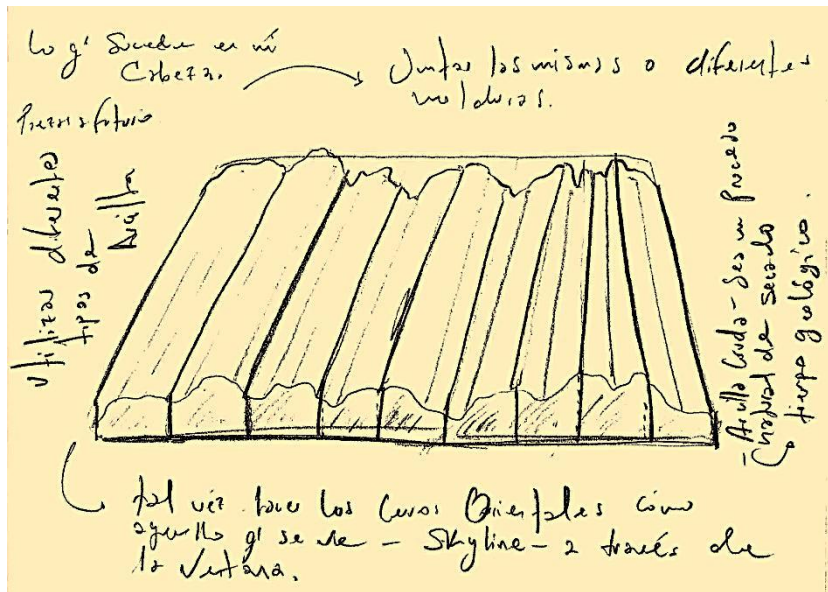 Lo q' Sucede en mi
Cabeza.
Juntar las mismas o diferentes
molduras.
Piezas a futuro
Utilizar diferentes
tipos de
Arcilla
- Arcilla Cruda - Sea un Proceso
natural de secado
tiempo geológico.
tal vez hacer los Cerros Orientales como
aquello q' se ve - Skyline - a través de
la Ventana.